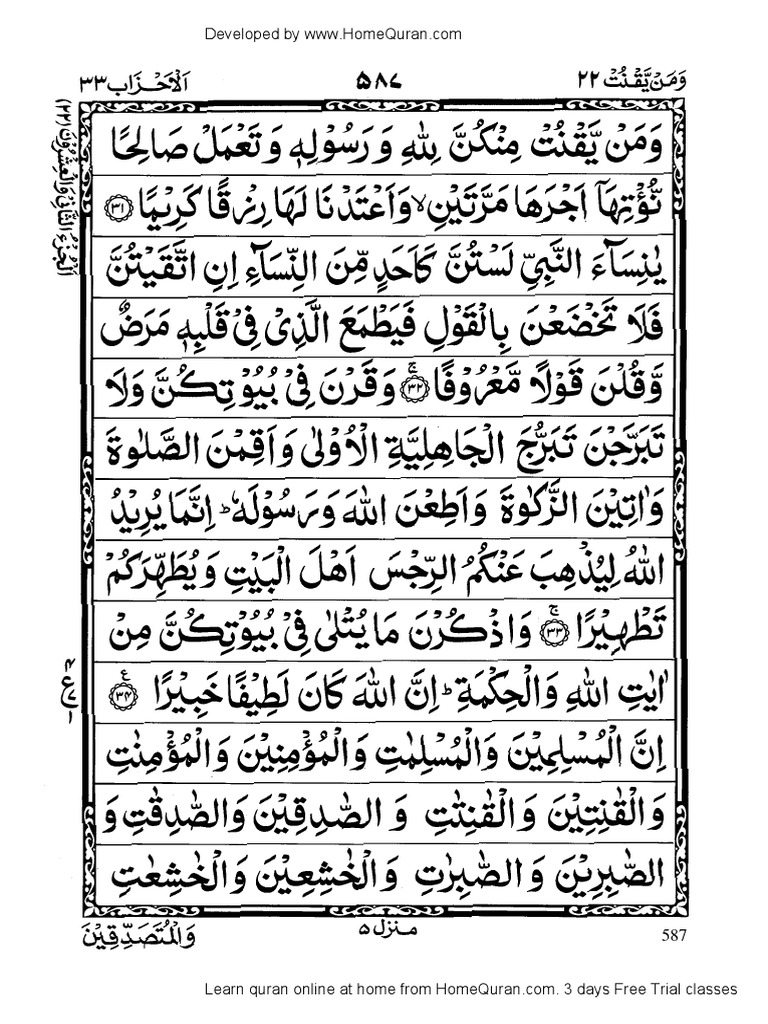 Developed by www.HomeQuran.com
وَمَنْ يَّقْنُتْ ٢٢ ۵۸۷ اَلْاَحْزَاب ٣٣
اَلْجُزْءُ الثَّانِيْ وَالْعِشْرُوْنَ (٢٢)
وَمَنْ يَّقْنُتْ مِنْكُنَّ لِلّٰهِ وَرَسُوْلِهٖ وَتَعْمَلْ صَالِحًا
نُّؤْتِهَآ اَجْرَهَا مَرَّتَيْنِ ۙ وَاَعْتَدْنَا لَهَا رِزْقًا كَرِيْمًا ﴿٣١﴾
يٰنِسَآءَ النَّبِيِّ لَسْتُنَّ كَاَحَدٍ مِّنَ النِّسَآءِ اِنِ اتَّقَيْتُنَّ
فَلَا تَخْضَعْنَ بِالْقَوْلِ فَيَطْمَعَ الَّذِيْ فِيْ قَلْبِهٖ مَرَضٌ
وَّقُلْنَ قَوْلًا مَّعْرُوْفًا ﴿٣٢﴾ۚ وَقَرْنَ فِيْ بُيُوْتِكُنَّ وَلَا
تَبَرَّجْنَ تَبَرُّجَ الْجَاهِلِيَّةِ الْاُوْلٰى وَاَقِمْنَ الصَّلٰوةَ
وَاٰتِيْنَ الزَّكٰوةَ وَاَطِعْنَ اللّٰهَ وَرَسُوْلَهٗ ؕ اِنَّمَا يُرِيْدُ
اللّٰهُ لِيُذْهِبَ عَنْكُمُ الرِّجْسَ اَهْلَ الْبَيْتِ وَيُطَهِّرَكُمْ
تَطْهِيْرًا ﴿٣٣﴾ۚ وَاذْكُرْنَ مَا يُتْلٰى فِيْ بُيُوْتِكُنَّ مِنْ
اٰيٰتِ اللّٰهِ وَالْحِكْمَةِ ؕ اِنَّ اللّٰهَ كَانَ لَطِيْفًا خَبِيْرًا ﴿٣٤﴾ع
اِنَّ الْمُسْلِمِيْنَ وَالْمُسْلِمٰتِ وَالْمُؤْمِنِيْنَ وَالْمُؤْمِنٰتِ
وَالْقٰنِتِيْنَ وَالْقٰنِتٰتِ وَالصّٰدِقِيْنَ وَالصّٰدِقٰتِ وَ
الصّٰبِرِيْنَ وَالصّٰبِرٰتِ وَالْخٰشِعِيْنَ وَالْخٰشِعٰتِ
منزل ۵
وَالْمُتَصَدِّقِيْنَ
587
Learn quran online at home from HomeQuran.com. 3 days Free Trial classes